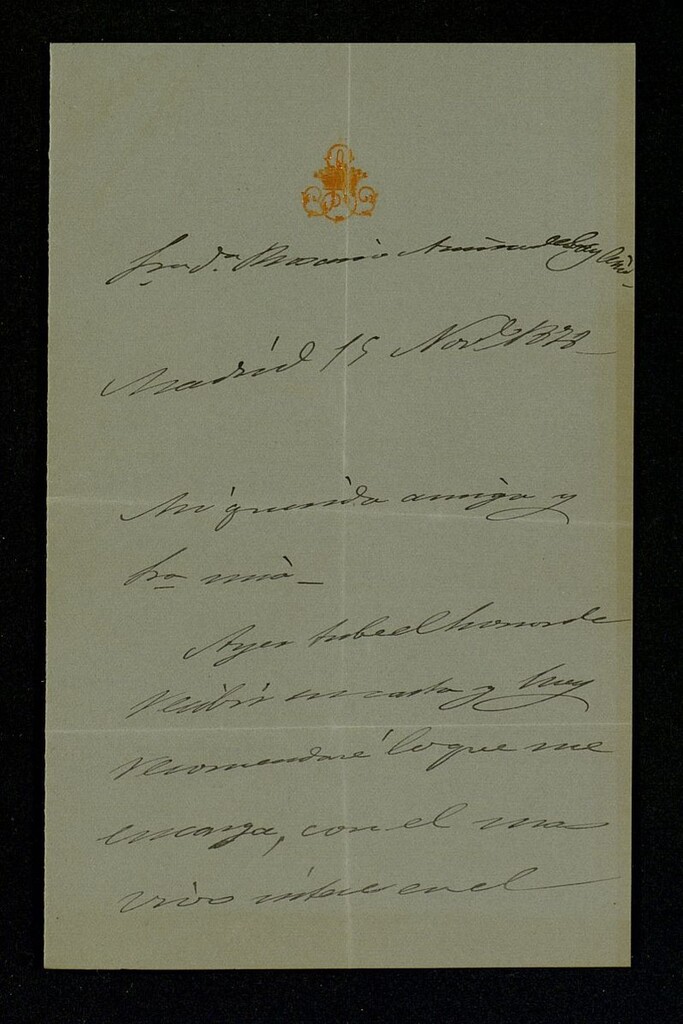 Sra Da. Rosario
Madrid 15 Nove. 1878
Mi querida amiga y
Sra mia_
Ayer tube el honor de
recibir su carta y hoy
recomendaré lo que me
encarga, con el mas
vivo interes en el